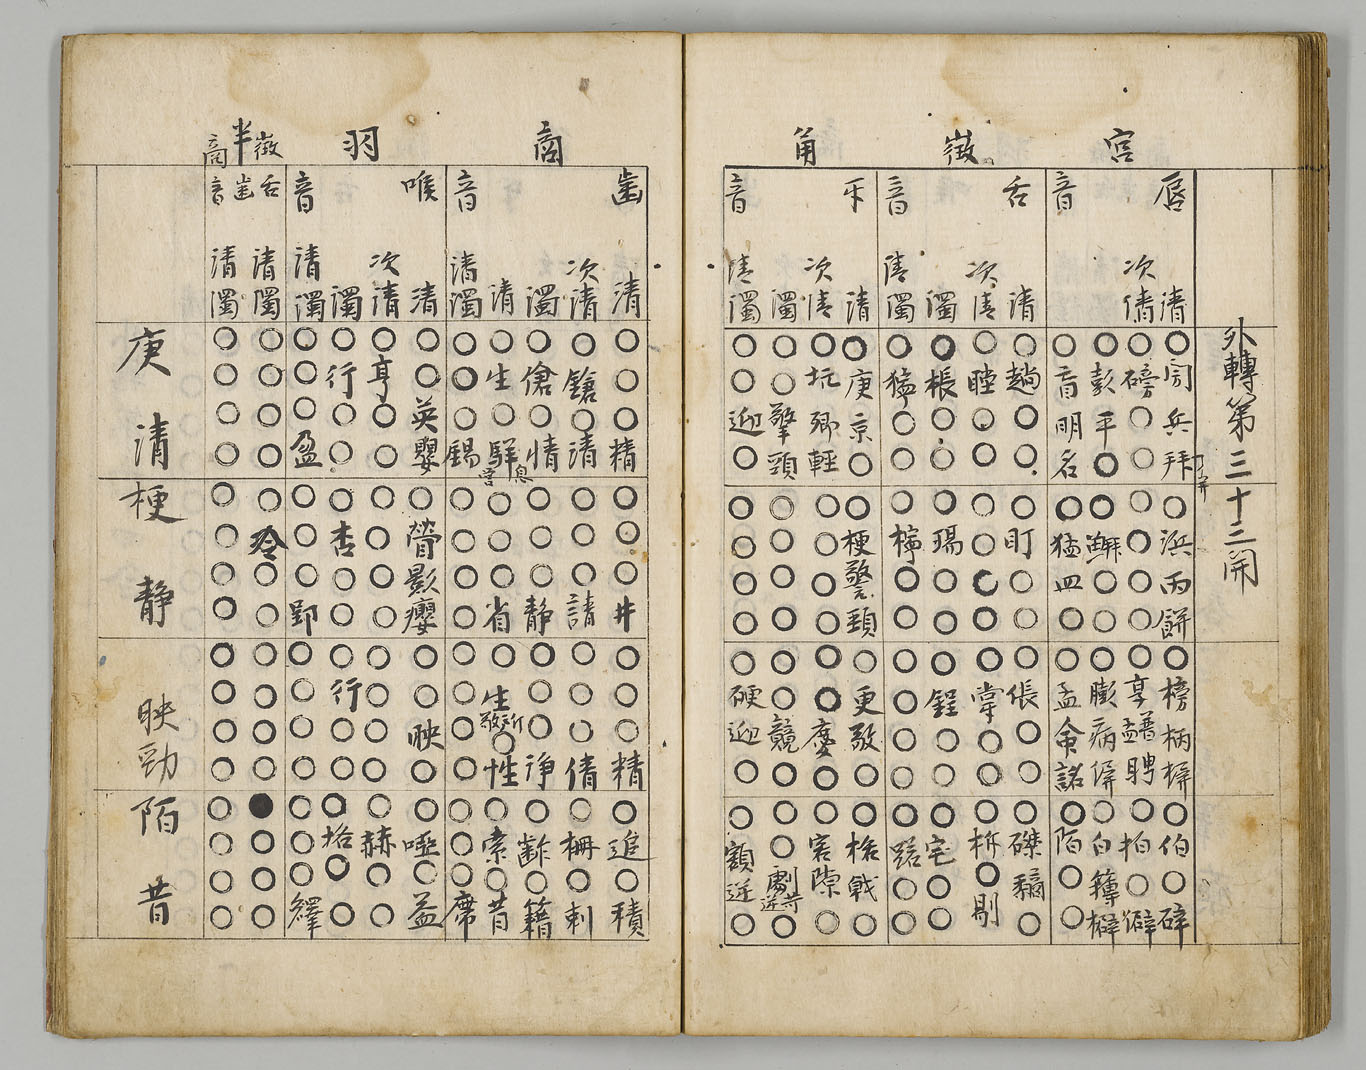 外轉第三十三開
宮
唇音
清○閍兵拜○浜丙餅○榜柄摒○伯○辟
次清○磅○○○○○○○聘○拍○僻
濁○彭平○○鮩○○○膨病偋○白擗
清濁○盲明名○猛皿○○孟命詺○陌○○
徵
舌音
清○趟○○○盯○○○倀○○○磔○
次清○瞠○○○○○○○掌○○○柝○剔
濁○棖○○○瑒○○○鋥○○○宅○○
清濁○獰○○○檸○○○○○○○蹃○○
角
牙音
清○庚京○○梗警頸○更敬○○格戟○
次清○坑卿輕○○○○○○慶○○客隙○
濁○○擎頸○○○○○○競○○○劇○
清濁○○迎○○○○○○硬迎○○額逆○
商
齒音
清○○○精○○○井○○○精○迮○積
次清○鎗○清○○○請○○○倩○柵○刺
濁○傖○情○○○靜○○○淨○齚○籍
清○生○騂○○省○生○性○索○昔
清濁○○○餳○○○○○○○○○○○席
羽
喉音
清○○英嬰○影癭○○映○○啞○益
次清○亨○○○○○○○○○○○赫○○
濁○行○○○杏○○○行○○○垎○○
清濁○○○盈○○○郢○○○○○○○繹
半徵商
舌齒音
清濁○○○○○冷○○○○○○●○○○
清濁○○○○○○○○○○○○○○○○
庚清梗靜映勁陌昔